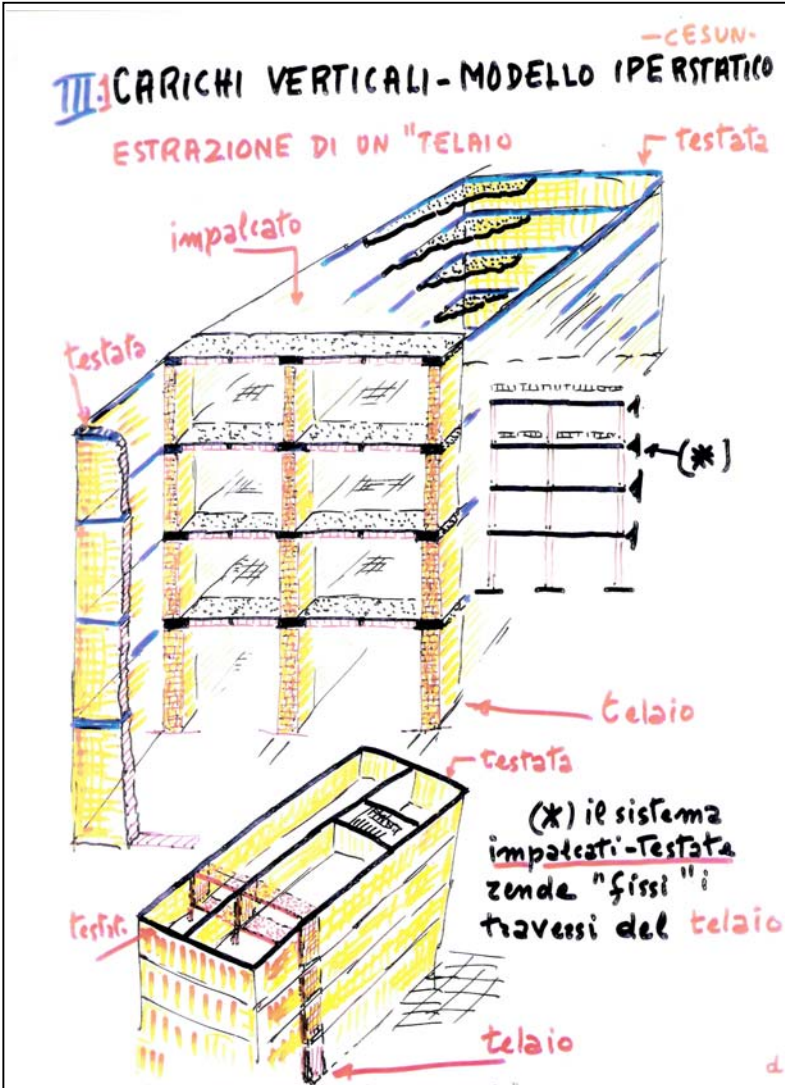 -CESUN-
III.1 CARICHI VERTICALI - MODELLO IPERSTATICO
ESTRAZIONE DI UN "TELAIO
testata
impalcato
testata
(*)
telaio
testata
(*) il sistema
impalcati-Testate
rende "fissi" i
traversi del telaio
testat.
telaio
d